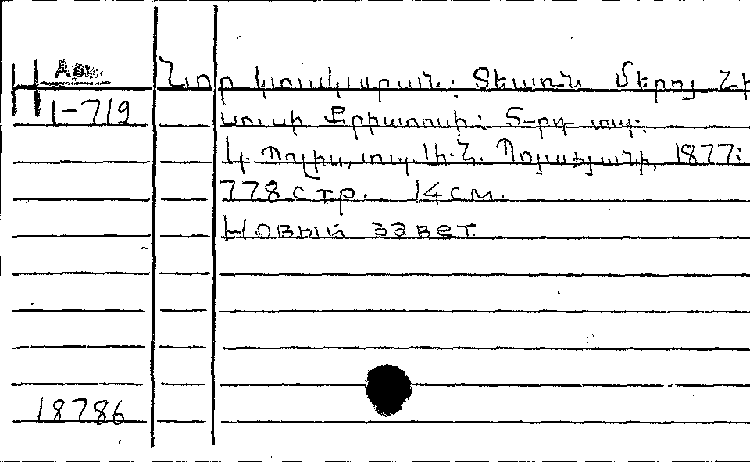 Н Арм.
1-719
Նոր կտակարան: Տեառն մերոյ Հի
սուսի Քրիստոսի: 5-րդ տպ:
Կ. Պոլիս, տպ. Պօյաճյանի, 1877:
778 стр. 14 см.
Новый завет
18786